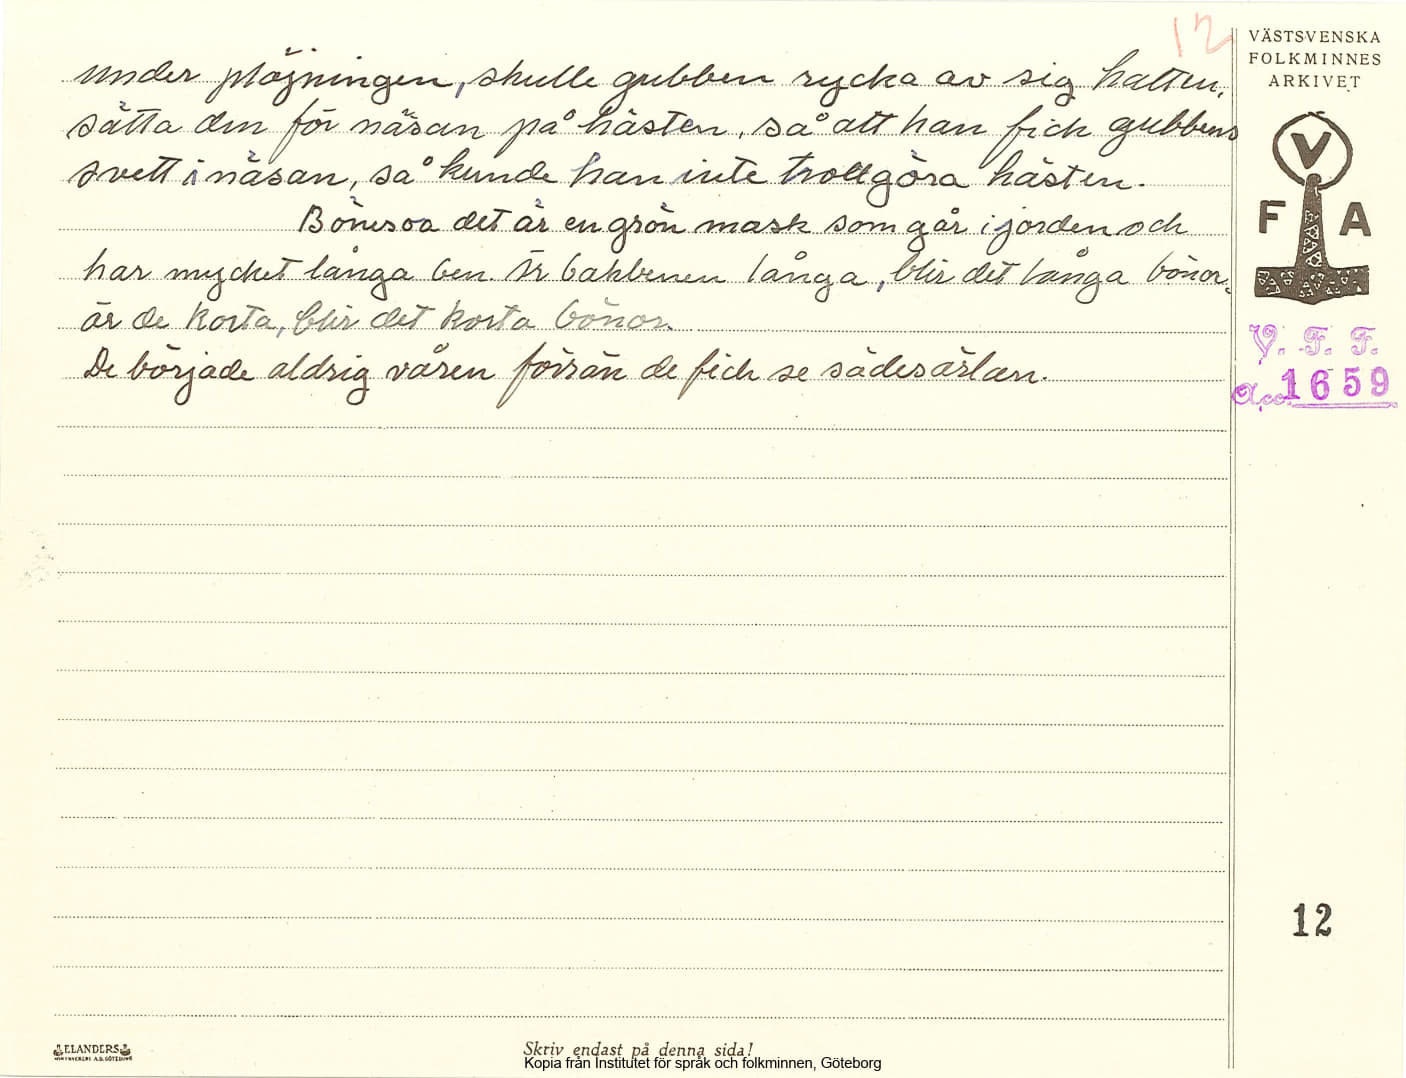 12
under plöjningen, skulle gubben rycka av sig hatten,
sätta den för näsan på hästen, så att han fick gubbens
svett i näsan, så kunde han inte trollgöra hästen.
Bönesoa det är en grön mask som går i jorden och
har mycket långa ben. Är bakbenen långa, blir det långa bönor,
är de korta, blir det korta bönor.
De började aldrig våren förrän de fick se sädesärlan.
VÄSTSVENSKA
FOLKMINNES
ARKIVET
V
F A
V. F. F.
Acc. 1659
12
ELANDERS
Skriv endast på denna sida!
Kopia från Institutet för språk och folkminnen, Göteborg